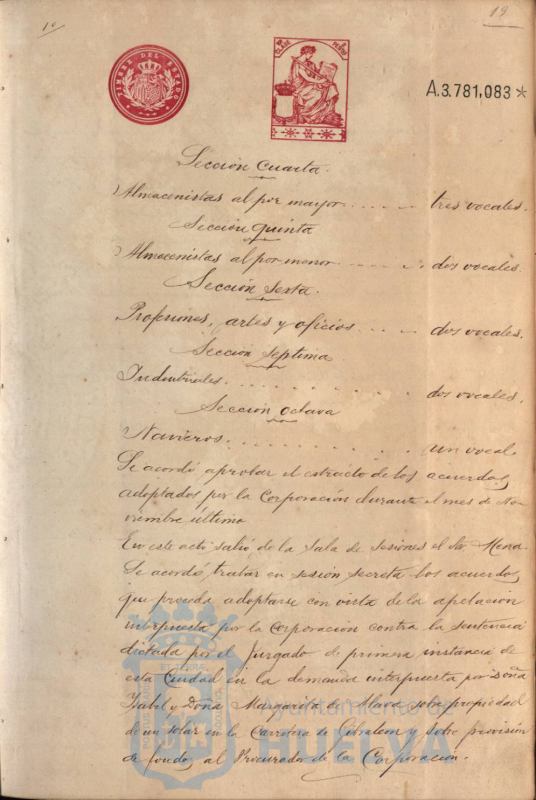 10
19
TIMBRE DEL ESTADO
A.3.781,083*
Sección Cuarta.
Almacenistas al por mayor . . . . . tres vocales.
Sección Quinta
Almacenistas al por menor . . . . . dos vocales.
Sección Sexta.
Profesiones, artes y oficios . . . . dos vocales.
Sección Septima
Industriales. . . . . . . . . dos vocales.
Sección Octava
Navieros. . . . . . . . . . un vocal.
Se acordó aprobar el extracto de los acuerdos
adoptados por la Corporación durante el mes de No-
viembre último
En este acto salió de la Sala de Sesiones el Sr Mena.
Se acordó, tratar en sesión secreta los acuerdos
que proceda adoptarse con vista de la apelación
interpuesta por la Corporación contra la sentencia
dictada por el Juzgado de primera instancia de
esta Ciudad en la demanda interpuesta por Doña
Isabel y Doña Margarita de Alava sobre propiedad
de un solar en la Carretera de Gibraleon y sobre provisión
de fondos al Procurador de la Corporación.
Ayuntamiento de
HUELVA